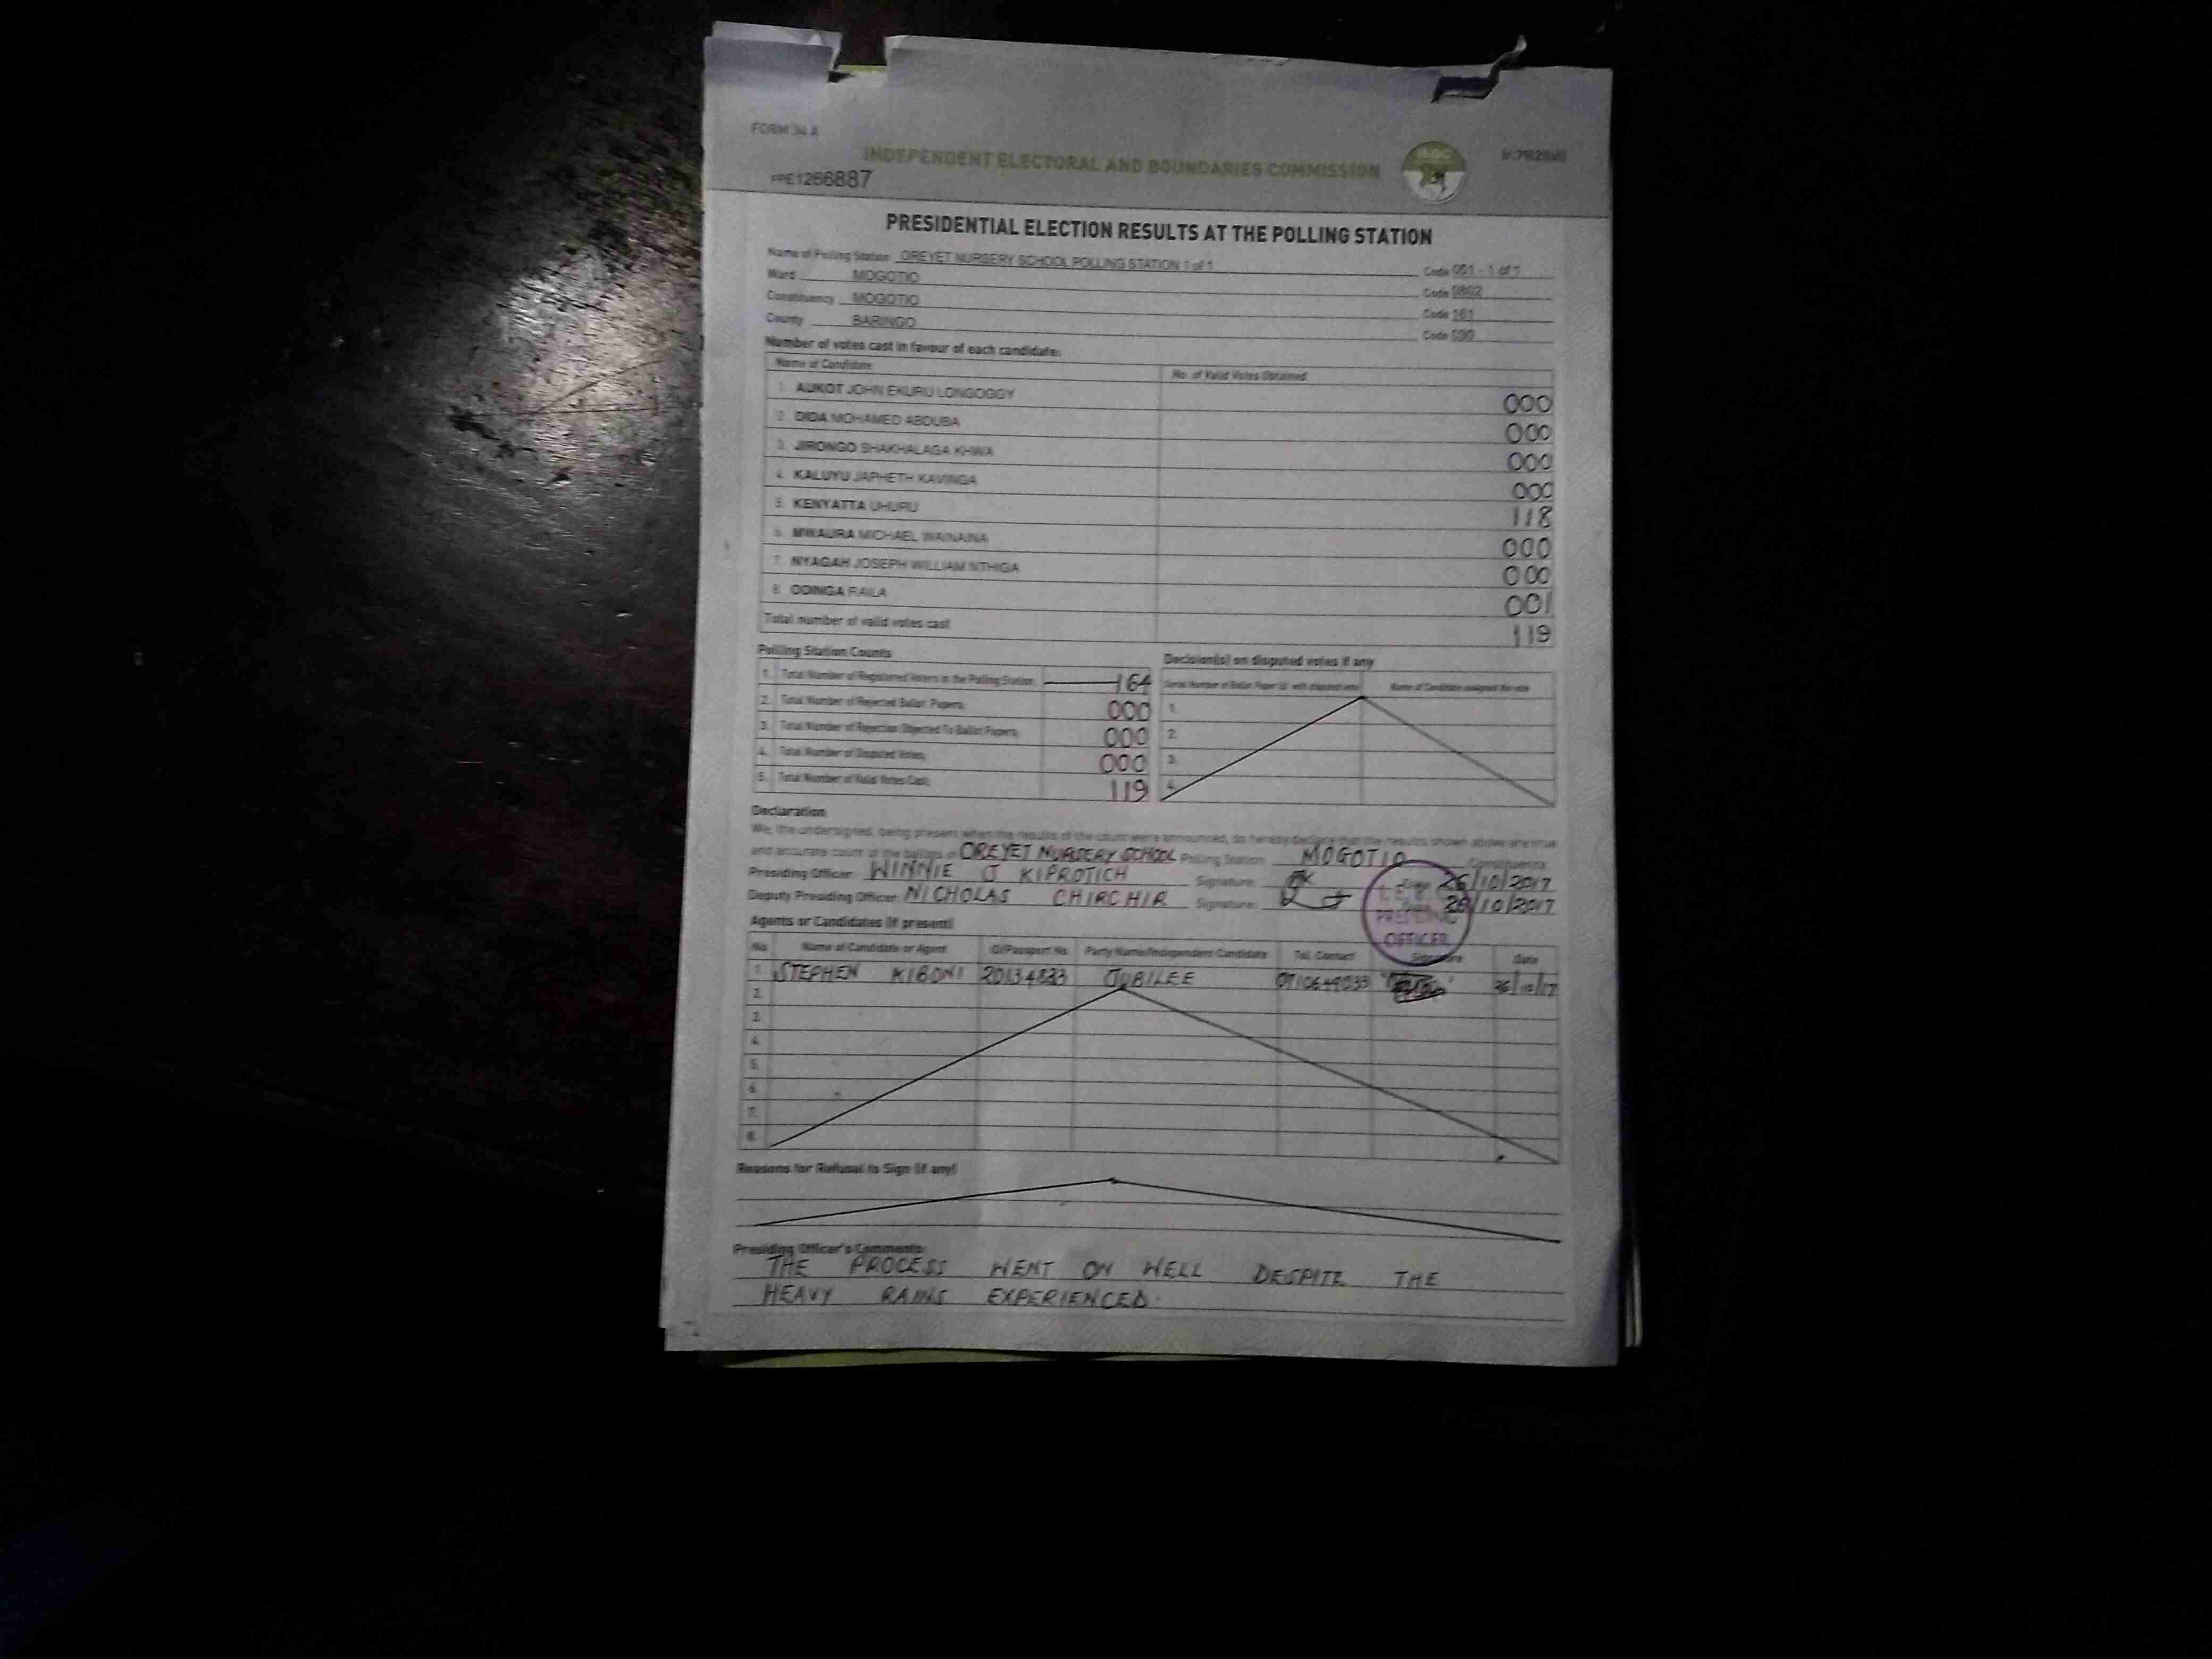 FORM 34 A
INDEPENDENT ELECTORAL AND BOUNDARIES COMMISSION
PRE1266887
PRESIDENTIAL ELECTION RESULTS AT THE POLLING STATION
Name of Polling Station OREYET NURSERY SCHOOL POLLING STATION 1 of 1 Code 051 - 1 of 1
Ward MOGOTIO Code 0802
Constituency MOGOTIO Code 161
County BARINGO Code 030
Number of votes cast in favour of each candidate:
Name of Candidate No. of Valid Votes Obtained
1. AUKOT JOHN EKURU LONGOGGY 000
2. DIDA MOHAMED ABDUBA 000
3. JIRONGO SHAKHALAGA KHWA 000
4. KALUYU JAPHETH KAVINGA 000
5. KENYATTA UHURU 118
6. MWAURA MICHAEL WAINAINA 000
7. NYAGAH JOSEPH WILLIAM NTHIGA 000
8. ODINGA RAILA 001
Total number of valid votes cast 119
Polling Station Counts
1. Total Number of Registered Voters in the Polling Station 164
2. Total Number of Rejected Ballot Papers 000
3. Total Number of Rejection Objected To Ballot Papers 000
4. Total Number of Disputed Votes 000
5. Total Number of Valid Votes Cast 119
Decision(s) on disputed votes if any
Serial Number of Ballot Paper (s) with disputed vote Name of Candidate assigned the vote
1.
2.
3.
4.
Declaration
We, the undersigned, being present when the results of the count were announced, do hereby declare that the results shown above are true
and accurate count of the ballots in OREYET NURSERY SCHOOL Polling Station MOGOTIO Constituency
Presiding Officer: WINNIE J KIPROTICH Signature: Date: 26/10/2017
Deputy Presiding Officer: NICHOLAS CHIRCHIR Signature: 26/10/2017
PRESIDING
OFFICER
Agents or Candidates (if present)
No. Name of Candidate or Agent ID/Passport No. Party Name/Independent Candidate Tel. Contact Signature Date
1. STEPHEN KIBONI 20134833 JUBILEE 26/10/17
2.
3.
4.
5.
6.
7.
8.
Reasons for Refusal to Sign (if any)
Presiding Officer's Comments:
THE PROCESS WENT ON WELL DESPITE THE
HEAVY RAINS EXPERIENCED.